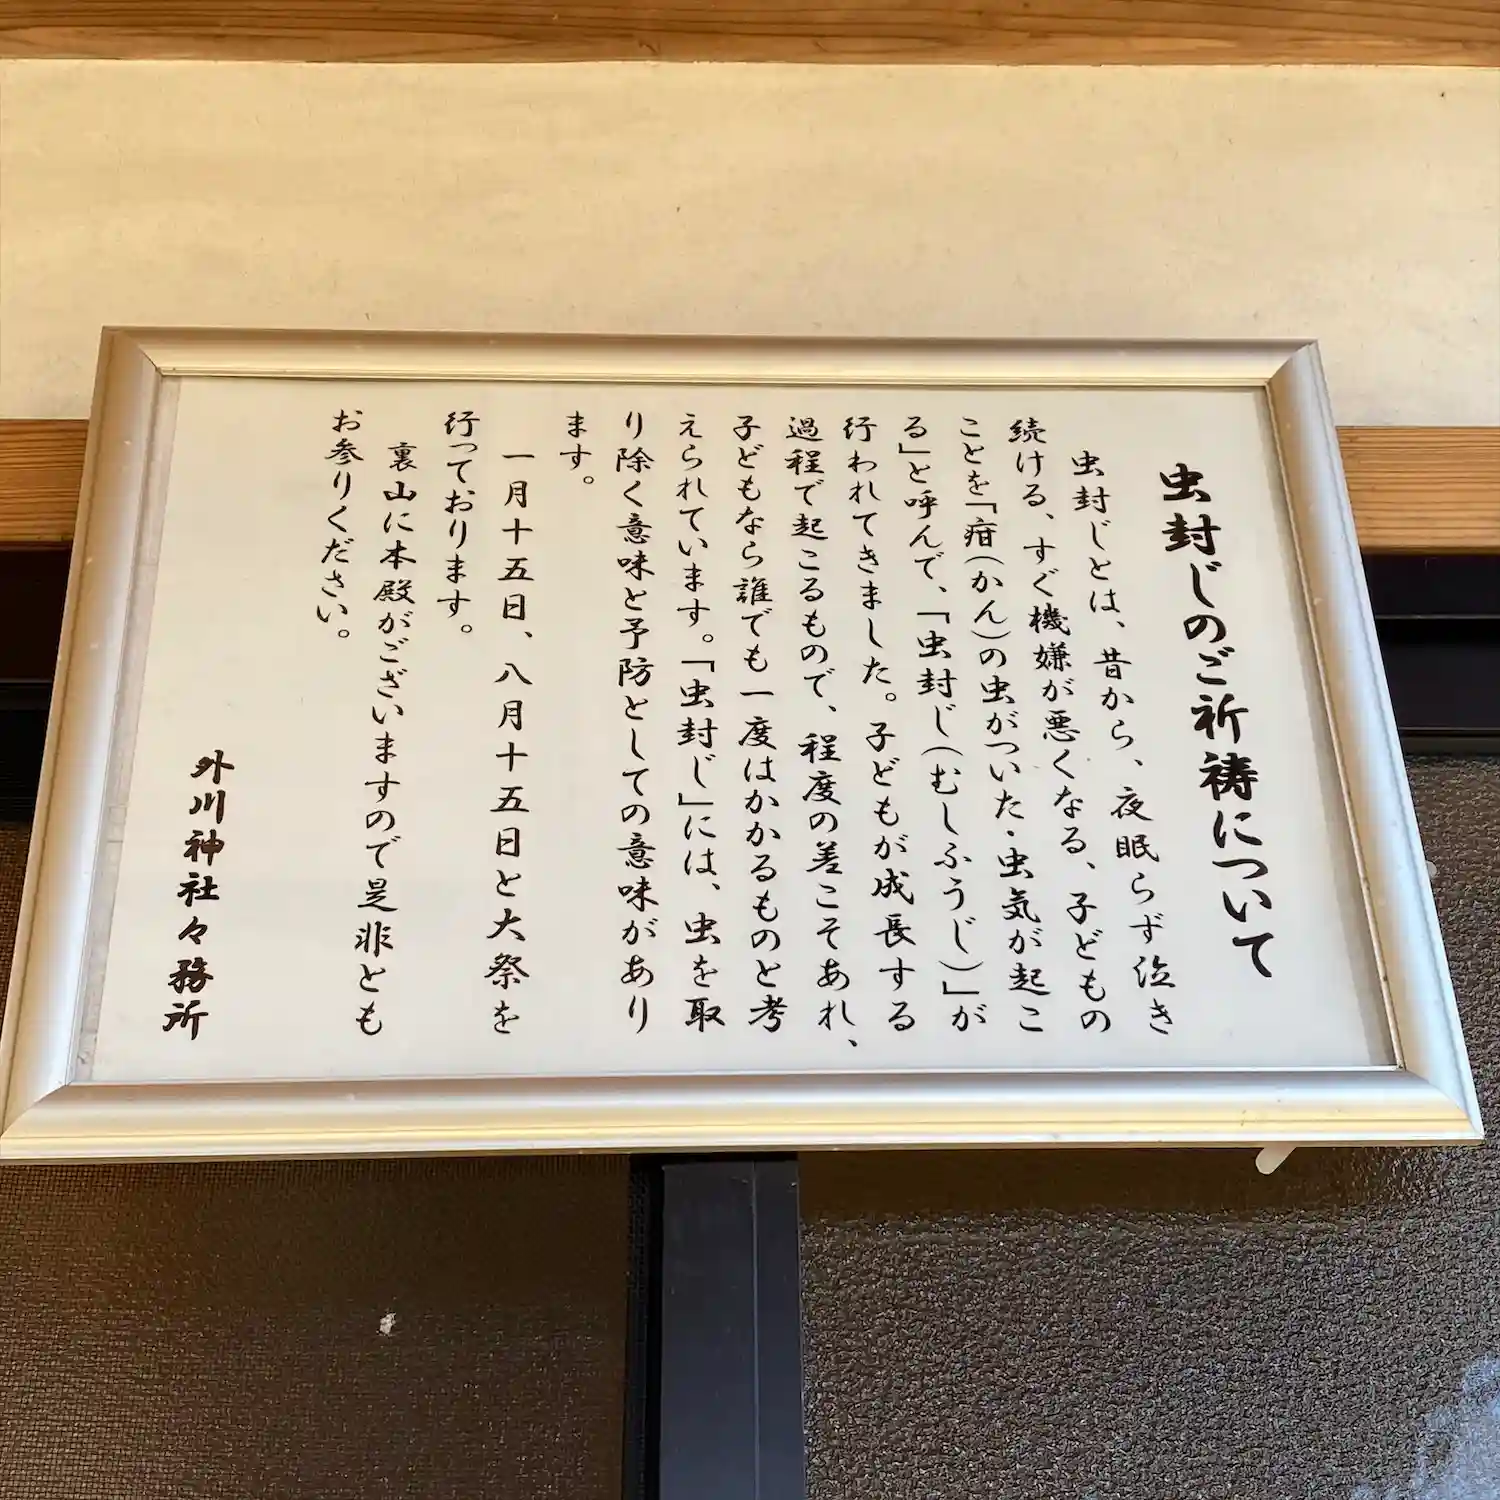 虫封じのご祈祷について
虫封じとは、昔から、夜眠らず泣き
続ける、すぐ機嫌が悪くなる、子どもの
ことを「疳(かん)の虫がついた・虫気が起こ
る」と呼んで、「虫封じ(むしふうじ)」が
行われてきました。子どもが成長する
過程で起こるもので、程度の差こそあれ、
子どもなら誰でも一度はかかるものと考
えられています。「虫封じ」には、虫を取
り除く意味と予防としての意味があり
ます。
一月十五日、八月十五日と大祭を
行っております。
裏山に本殿がございますので是非とも
お参りください。
外川神社々務所